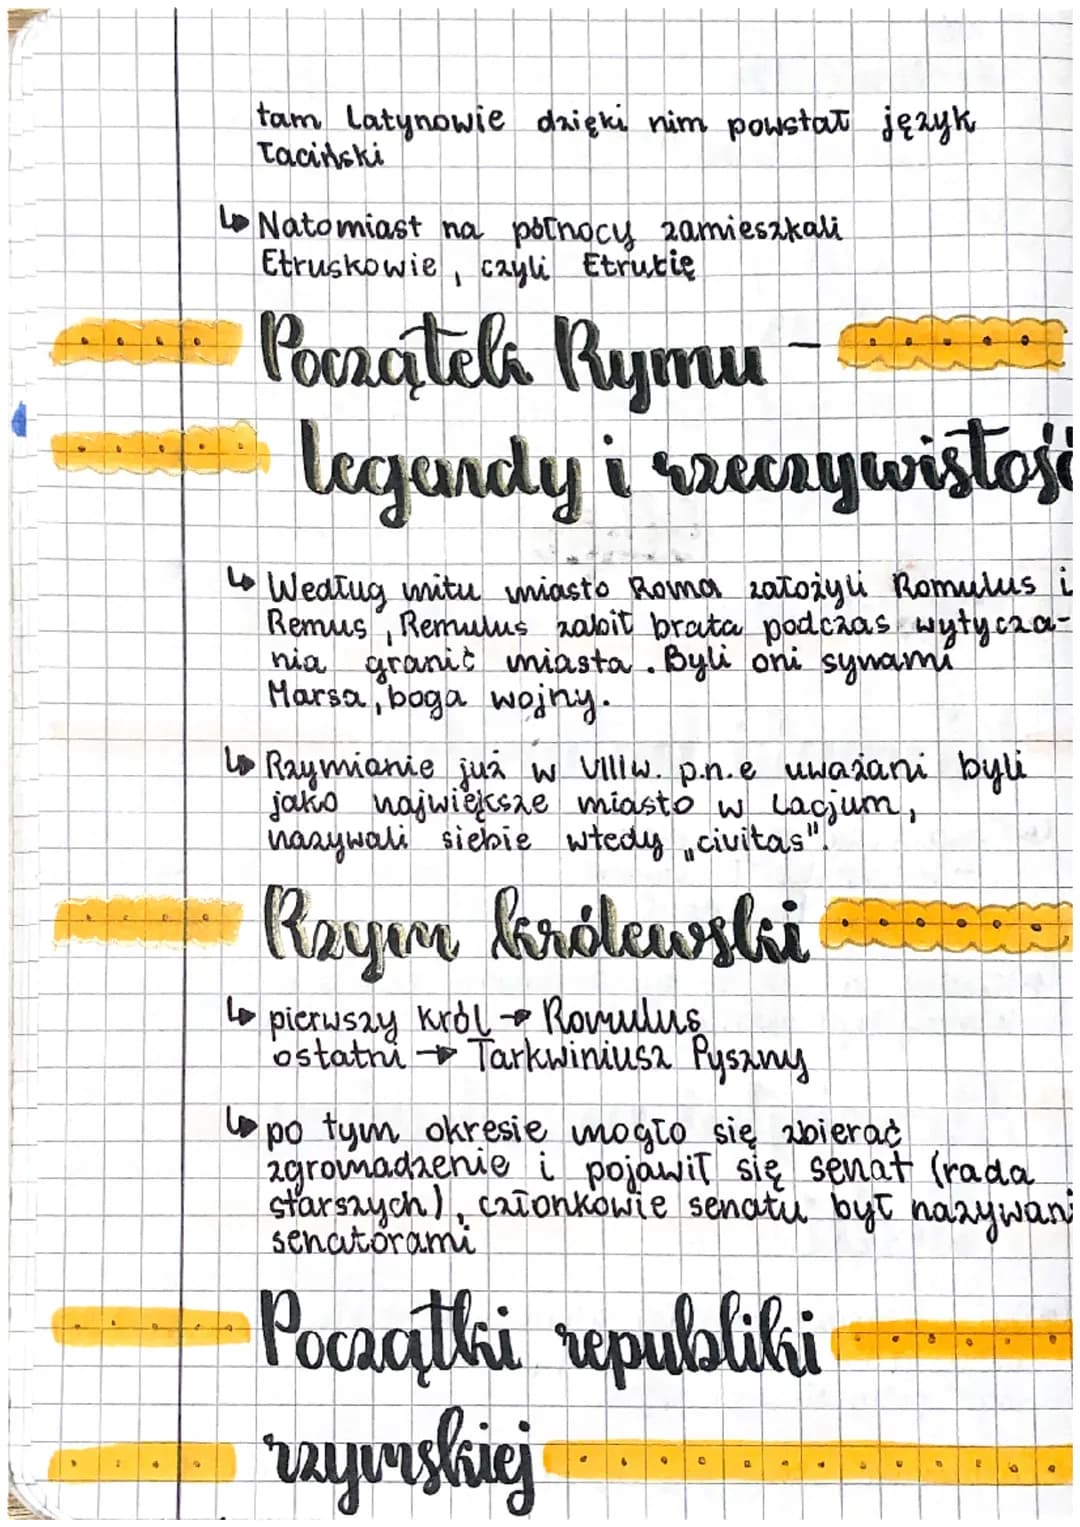 tam Latynowie dzięki nim powstał język
łaciński
↳ Natomiast na północy zamieszkali
Etruskowie, czyli Etrurię
Początek Rymu -
legendy i rzeczywistość
↳ Według mitu miasto Roma założyli Romulus i
Remus, Remulus zabił brata podczas wytycza-
nia granic miasta. Byli oni synami
Marsa, boga wojny.
↳ Rzymianie już w VIIIw. p.n.e uważani byli
jako największe miasto w Lacjum,
nazywali siebie wtedy „civitas".
Rzym królewski
↳ pierwszy król → Romulus
ostatni → Tarkwiniusz Pyszny
↳ po tym okresie mogło się zbierać
zgromadzenie i pojawił się senat (rada
starszych), członkowie senatu był nazywani
senatorami
Początki republiki
rzymskiej